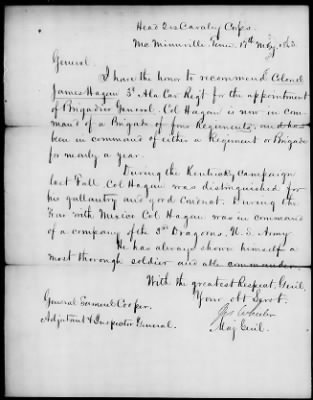 Head Qrs Cavalry Corps.
Mc Minnville Tenn 17th May 1863.
General.
I have the honor to recommend Colonel
James Hagan 3d. Ala Cav Regt. for the appointment
of Brigadier General. Col Hagan is now in com-
mand of a Brigade of four Regiments, and has
been in command of either a Regiment or Brigade
for nearly a year.
During the Kentucky Campaign
last Fall. Col Hagan was distinguished for
his gallantry and good conduct. During the
War with Mexico Col. Hagan was in command
of a company of the 3rd Dragoons. U. S. Army
He has always shown himself a
most thorough soldier and able commander.
With the greatest Respect, Genl.
Your obt Servt.
Jos Wheeler
Maj Genl.
General Samuel Cooper.
Adjutant & Inspector General.